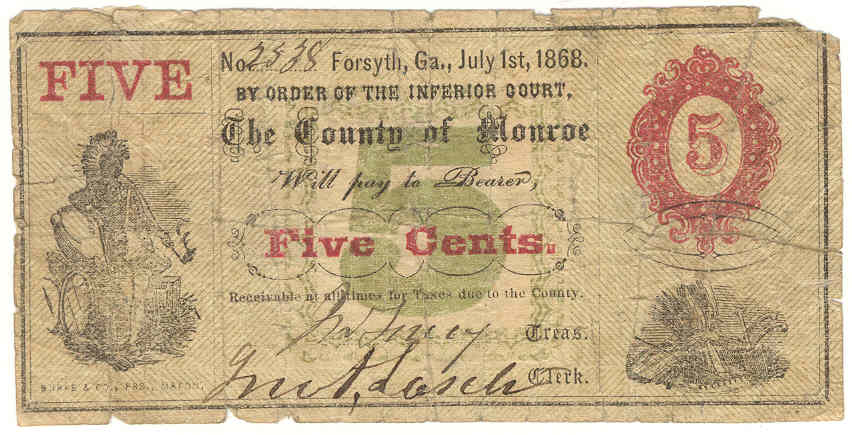 FIVE
No. 2538 Forsyth, Ga., July 1st, 1868.
BY ORDER OF THE INFERIOR COURT,
The County of Monroe
Will pay to Bearer,
5
5
Five Cents.
Receivable at all times for Taxes due to the County.
Treas.
Clerk.
BURKE & CO., PRS., MACON.